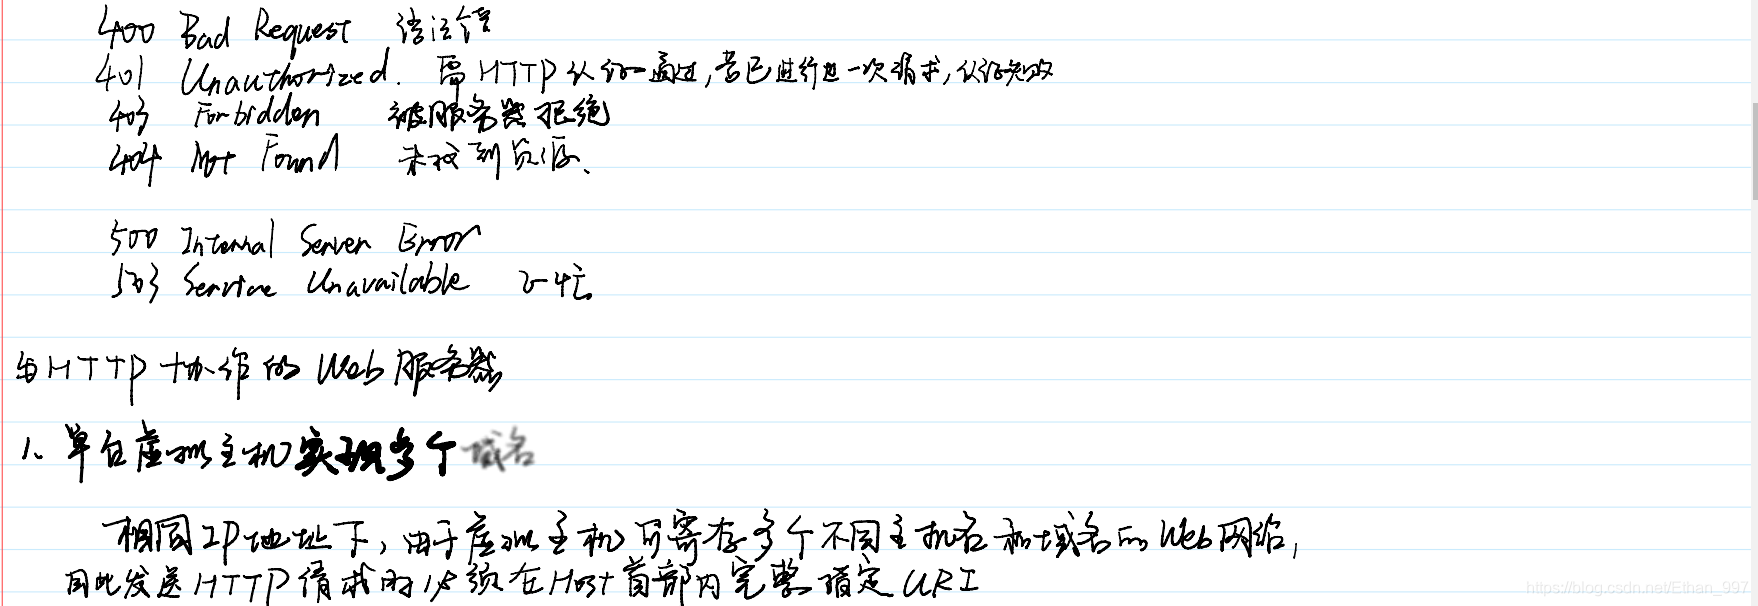 400 Bad Request 语法错
401 Unauthorized. 需HTTP认证通过,若已进行过一次请求,认证失败
403 Forbidden 被服务器拒绝
404 Not Found 未找到资源、
500 Internal Server Error
503 Service Unavailable 忙
与HTTP协作的Web服务器
1、单台虚拟主机实现多个域名
相同IP地址下,由于虚拟主机可寄存多个不同主机名和域名的Web网络,
因此发送HTTP请求时必须在Host首部内完整指定URI
https://blog.csdn.net/Ethan_997